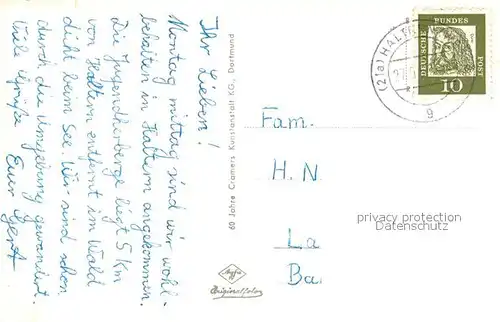 Ihr Lieben!
Montag mittag sind wir wohl-
behalten in Haltern angekommen.
Die Jugendherberge liegt 5 km
von Haltern entfernt im Wald
dicht beim See. Wir sind schon
durch die Umgebung gewandert.
Viele Grüße Euer Gert
60 Jahre Cramers Kunstanstalt KG., Dortmund
Agfa
Originalfoto
(21a) HALTE
g
DEUTSCHE BUNDES POST
10
Fam.
H. N.
La
Ba
privacy protection
Datenschutz